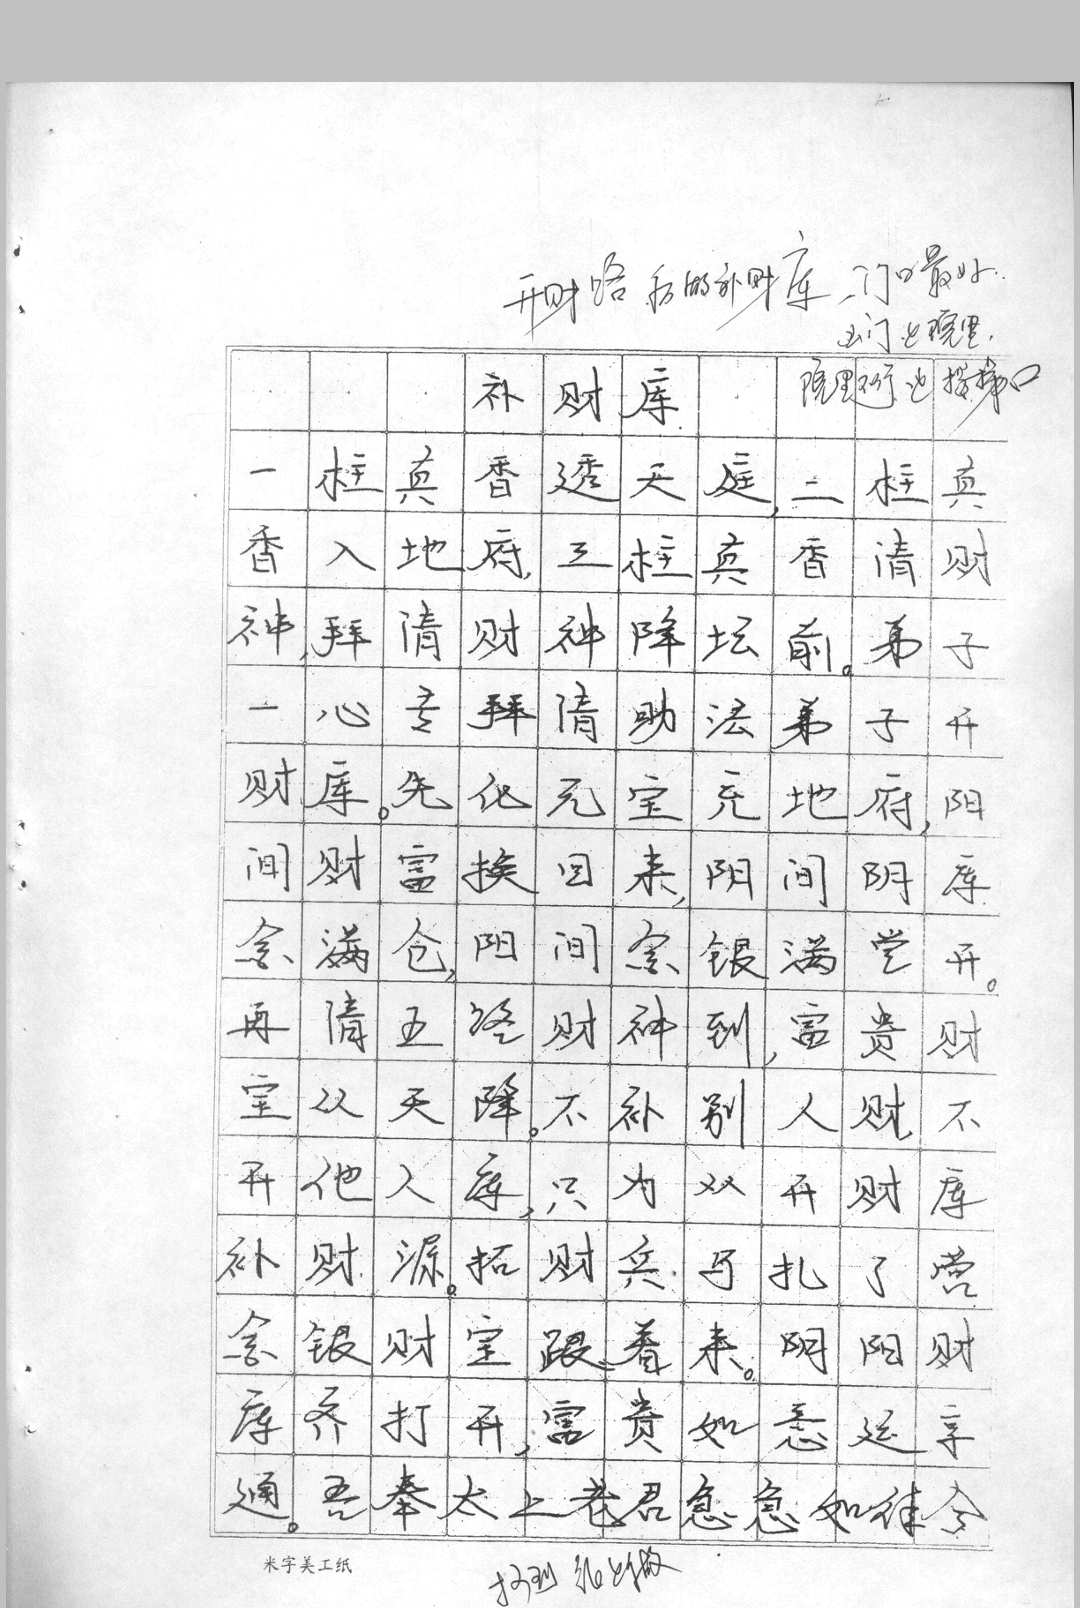 开财路 和 补财库 门口最好
出门 院里
院里不行 也 口
补财库
一柱真香透天庭,二柱真
香入地府,三柱真香清财
神,拜请财神降坛前。弟子
一心专拜请助法弟子开
财库。先化元宝充地府,阳
间财富换回来,阳间阴库
金满仓,阳间金银满堂开。
再请五路财神到,富贵财
宝从天降。不补别人财,不
开他人库,只为双开财库
补财源。招财兵马扎了营
金银财宝跟着来。阴阳财
库齐打开,富贵如意运亨
通。吾奉太上老君急急如律令
米字美工纸